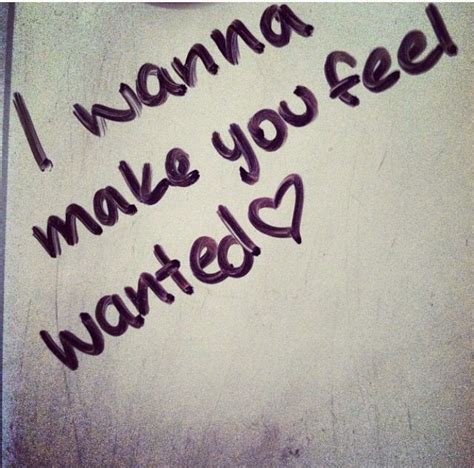 I wanna
make you feel
wanted♡